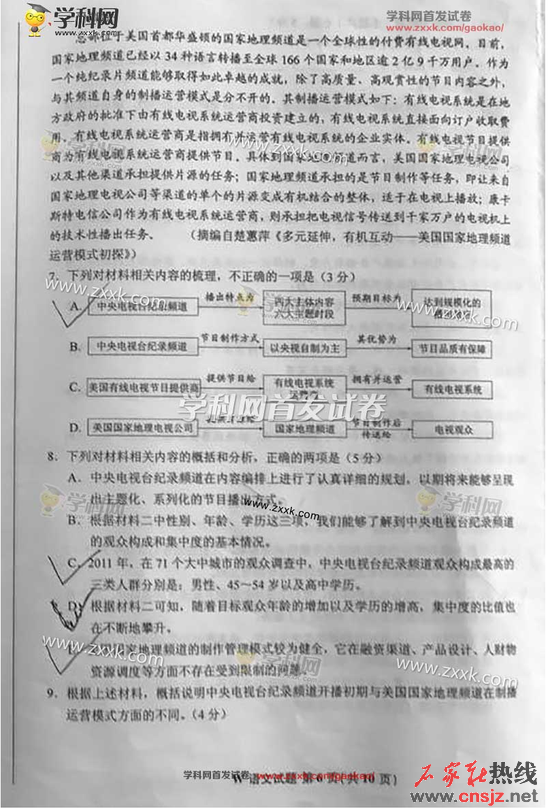 学科网首发试卷
www.zxxk.com/gaokao/
学科网
www.zxxk.com
总部位于美国首都华盛顿的国家地理频道是一个全球性的付费有线电视网。目前，
国家地理频道已经以 34 种语言转播至全球 166 个国家和地区逾 2 亿 9 千万用户。作为
一个纯纪录片频道能够取得如此卓越的成就，除了高质量、高观赏性的节目内容之外，
与其频道自身的制播运营模式是分不开的。其制播运营模式如下：有线电视系统是在地
方政府的批准下由有线电视系统运营商投资建立的，有线电视系统直接面向订户收取费
用，有线电视系统运营商是指拥有并运营有线电视系统的企业实体。有线电视节目提供
商为有线电视系统运营商提供节目。具体到国家地理频道而言，美国国家地理电视公司
以及其他渠道承担提供片源的任务；国家地理频道承担的是节目制作等任务，即让来自
国家地理电视公司等渠道的单个的片源变成有机结合的整体，适于在电视上播放；康卡
斯特电信公司作为有线电视系统运营商，则承担把电视信号传送到千家万户的电视机上
的技术性播出任务。 （摘编自楚蕙萍《多元延伸，有机互动——美国国家地理频道
运营模式初探》）
7. 下列对材料相关内容的梳理，不正确的一项是（3 分）
A. 中央电视台纪录频道 播出特点为 四大主体内容 六大主题时段 预期目标为 达到规模化的
B. 中央电视台纪录频道 节目制作方式 以央视自制为主 其优势为 节目品质有保障
C. 美国有线电视节目提供商 提供节目给 有线电视系统 运营商 拥有并运营 有线电视系统
学科网首发试卷
D. 美国国家地理电视公司 国家地理频道 节目制作后 传送给 电视观众
8. 下列对材料相关内容的概括和分析，正确的两项是（5 分）
A. 中央电视台纪录频道在内容编排上进行了认真详细的规划，以期将来能够呈现
出主题化、系列化的节目播出方式。
www.zxxk.com
B. 根据材料二中性别、年龄、学历这三项，我们能够了解到中央电视台纪录频道
的观众构成和集中度的基本情况。
C. 2011 年，在 71 个大中城市的观众调查中，中央电视台纪录频道观众构成最高的
三类人群分别是：男性、45~54 岁以及高中学历。
D. 根据材料二可知，随着目标观众年龄的增加以及学历的增高，集中度的比值也
在不断地攀升。
国家地理频道的制作管理模式较为健全，它在融资渠道、产品设计、人财物
资源调度等方面不存在受到限制的问题。
学科网
www.zxxk.com
9. 根据上述材料，概括说明中央电视台纪录频道开播初期与美国国家地理频道在制播
运营模式方面的不同。（4 分）
学科网首发试卷 www.zxxk.com/gaokao/
W·语文试题 第 6 页（共 10 页）
石家庄热线
www.cnsjz.net